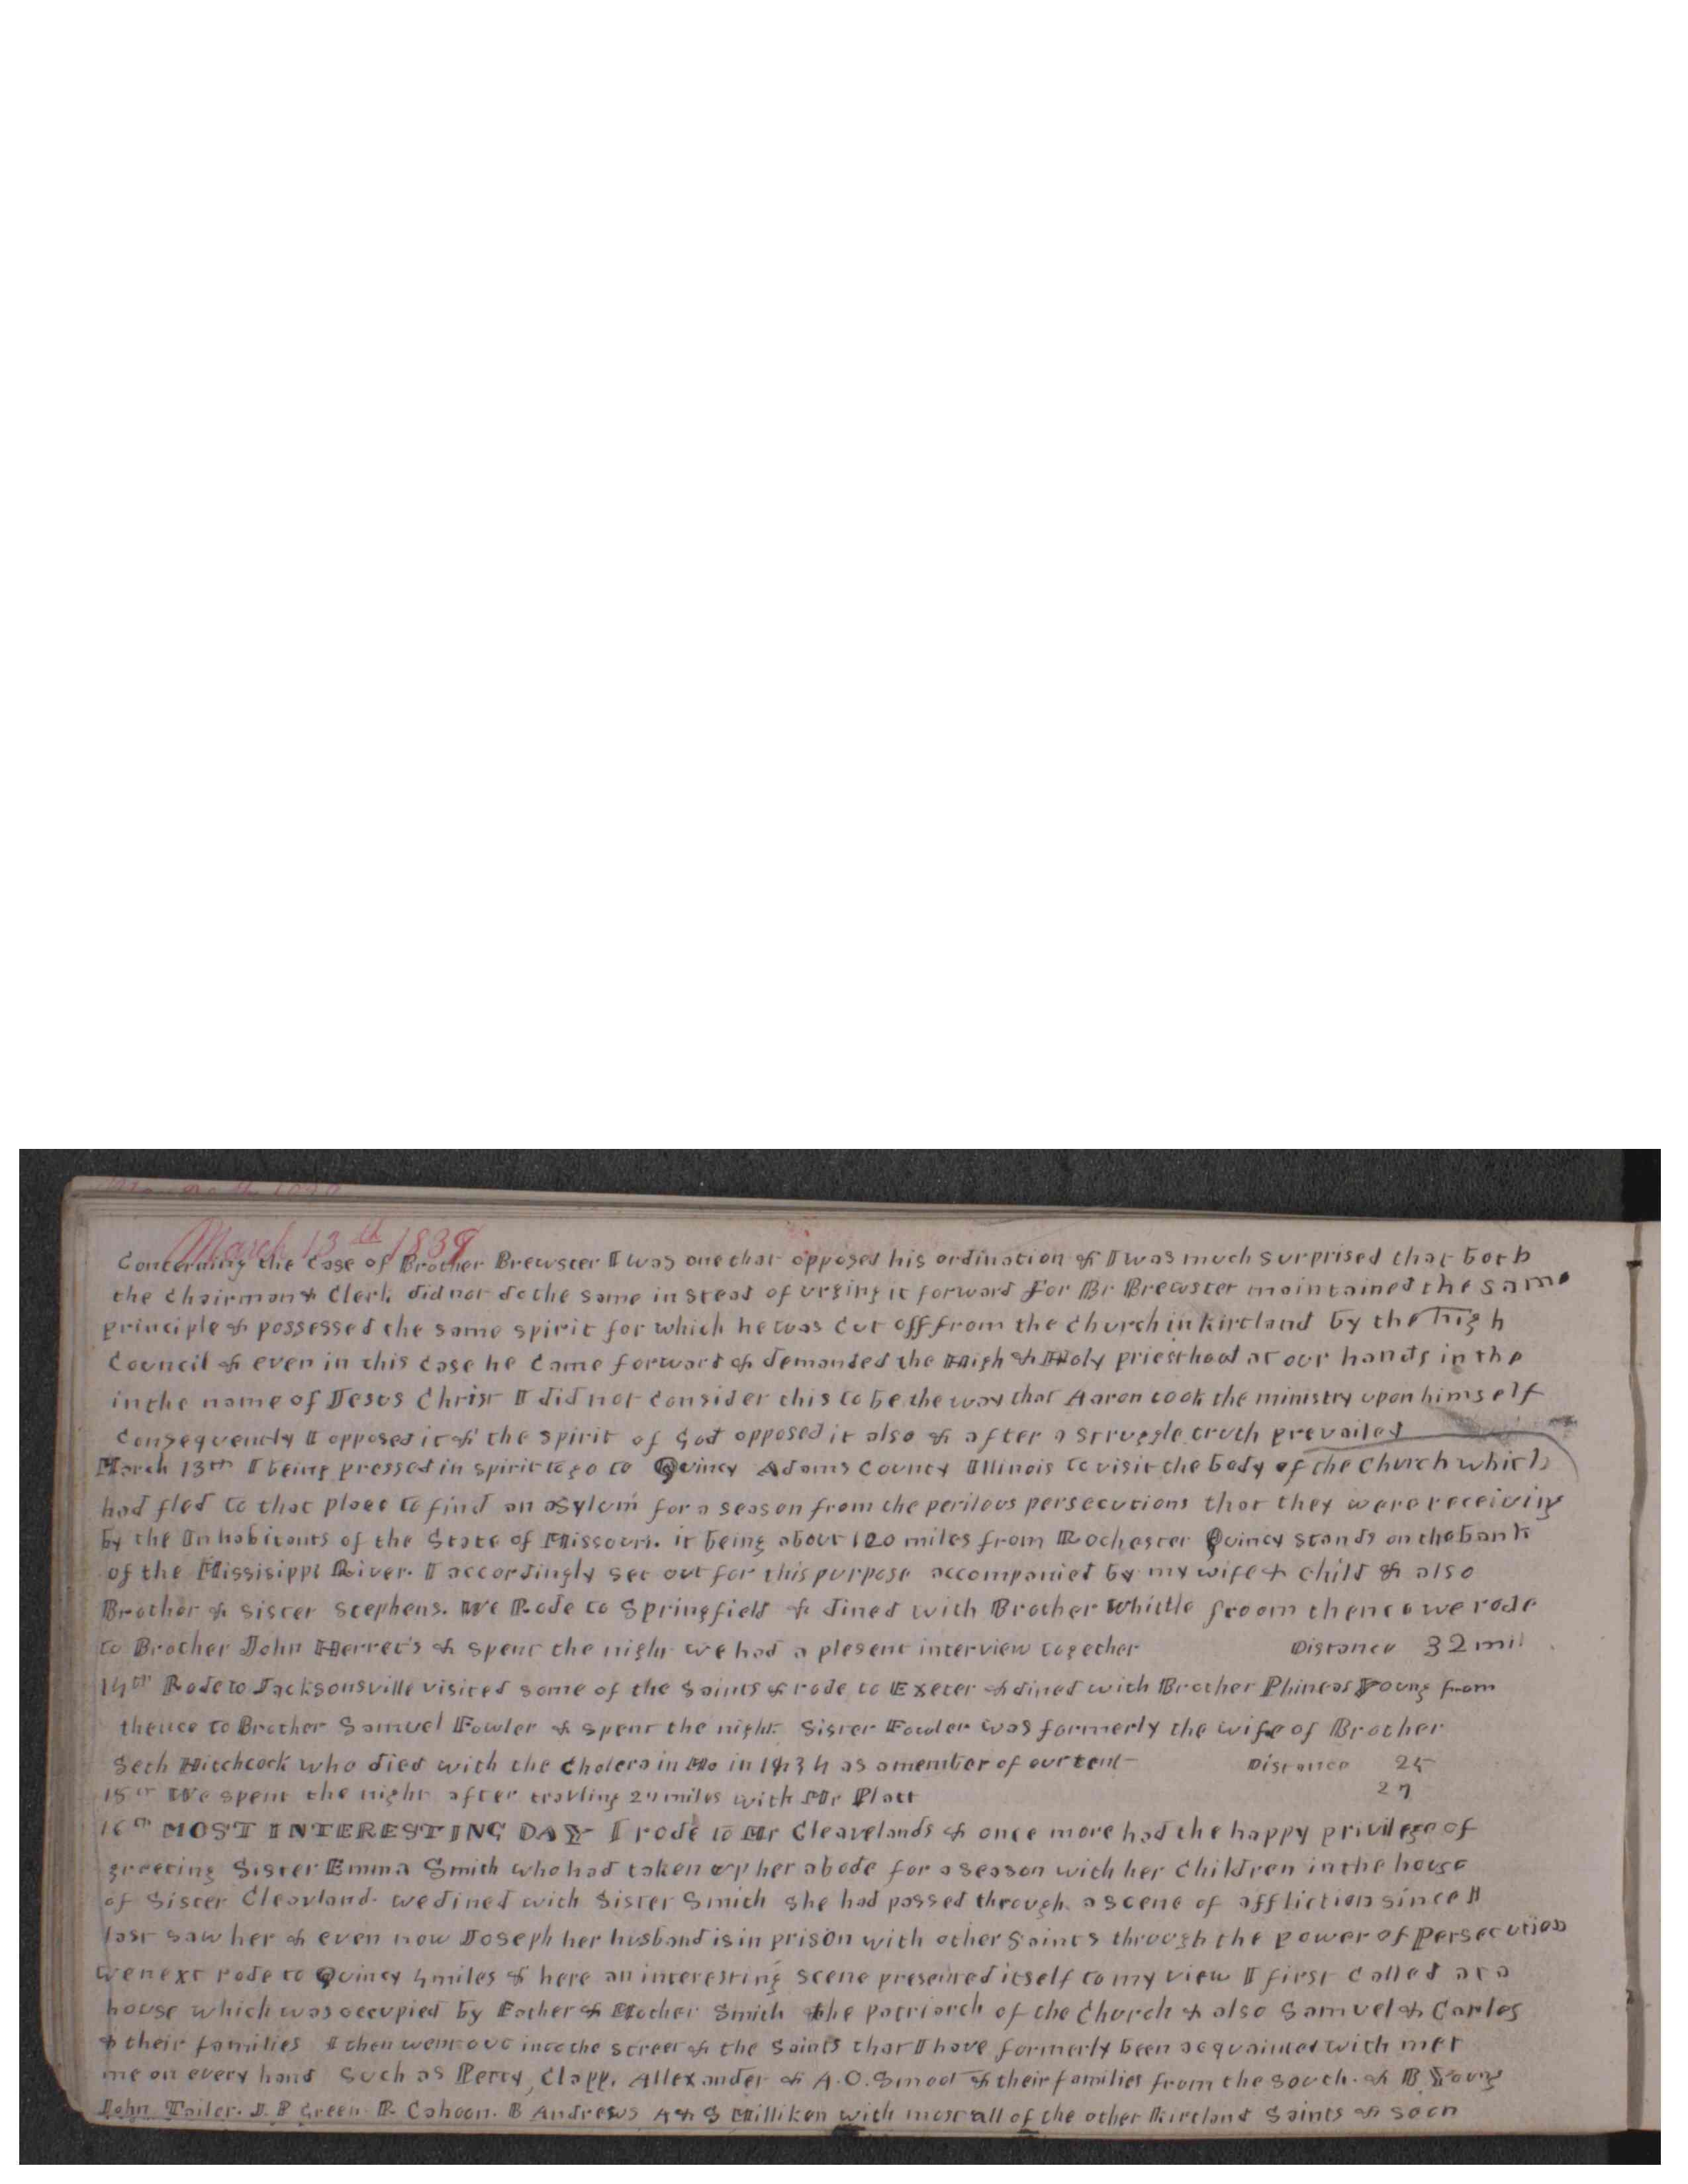 March 13th 1839
Concerning the Case of Brother Brewster I was one that opposed his ordination & I was much surprised that both
the Chairman & Clerk did not do the same in stead of urging it forward For Br Brewster maintained the same
principle & possessed the same spirit for which he was Cut off from the Church in Kirtland by the high
Council & even in this Case he Came forward & demanded the High & Holy priesthood at our hands in the
in the name of Jesus Christ I did not Consider this to be the way that Aaron took the ministry upon himself
Consequently I opposed it & the spirit of God opposed it also & after a struggle truth prevailed
March 13th I being pressed in spirit to go to Quincy Adams County Illinois to visit the body of the Church which
had fled to that place to find an asylum for a season from the perilous persecutions that they were receiving
by the Inhabitants of the State of Missouri. it being about 120 miles from Rochester Quincy stands on the bank
of the Missisippi River. I accordingly set out for this purpose accompanied by my wife & child & also
Brother & Sister Stephens. We Rode to Springfield & dined with Brother Whittle froom thence we rode
to Brother John Herret's & spent the night we had a plesent interview together Distance 32 mil
14th Rode to Jacksonsville visited some of the Saints & rode to Exeter & dined with Brother Phineas Young from
thence to Brother Samuel Fowler & spent the night. Sister Fowler was formerly the wife of Brother
Seth Hitchcock who died with the Cholera in Mo in 1834 as a member of our tent Distance 25
15th We spent the night after travling 27 miles with Mr Platt 27
16th MOST INTERESTING DAY I rode to Mr Cleavelands & once more had the happy privilege of
greeting Sister Emma Smith who had taken up her abode for a season with her Children in the house
of Sister Cleavland. we dined with Sister Smith she had passed through a scene of affliction since I
last saw her & even now Joseph her husband is in prison with other Saints through the power of Persecution
We next rode to Quincy 4 miles & here an interesting scene presented itself to my view I first Called at a
house which was occupied by Father & Mother Smith the patriarch of the Church & also Samuel & Carles
& their families I then went out into the street & the Saints that I have formerly been acquainted with met
me on every hand Such as Perry, Clapp, Allexander & A.O. Smoot & their families from the south. & B Young
John Tailer. J. P Green R. Cahoon. B Andrews A & S Milliken with most all of the other Kirtland Saints & soon